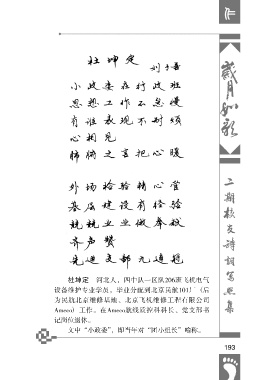 杜坤定
刘予善
小政委在行政班
思想工作不怠慢
有谁表现不对头
心相见
肺腑之言把心暖
外场检验精心管
基层建设有经验
兢兢业业做奉献
齐声赞
先进支部九连冠
杜坤定 河北人，四中队一区队206班飞机电气
设备维护专业学员。毕业分配到北京民航101厂（后
为民航北京维修基地、北京飞机维修工程有限公司
Ameco）工作。在Ameco航线质控科科长、党支部书
记岗位退休。
文中“小政委”，即当年对“团小组长”喻称。
岁月如歌
二期校友诗词写照集
193